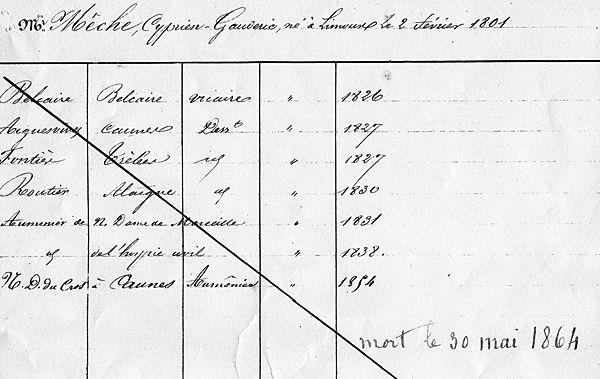 Mr. Mêche, Cyprien-Gauderic, né à Limoux le 2 février 1801
Belcaire Belcaire vicaire " 1826
Aiguesvives Caunes Dess.t " 1827
Fontiès Trèbes id " 1827
Routier Alaigne id " 1830
Aumônier de N. Dame de Marceille " 1831
id de l'hospice civil " 1838.
N. D. du Cros à Caunes Aumônier " 1854
mort le 30 mai 1864